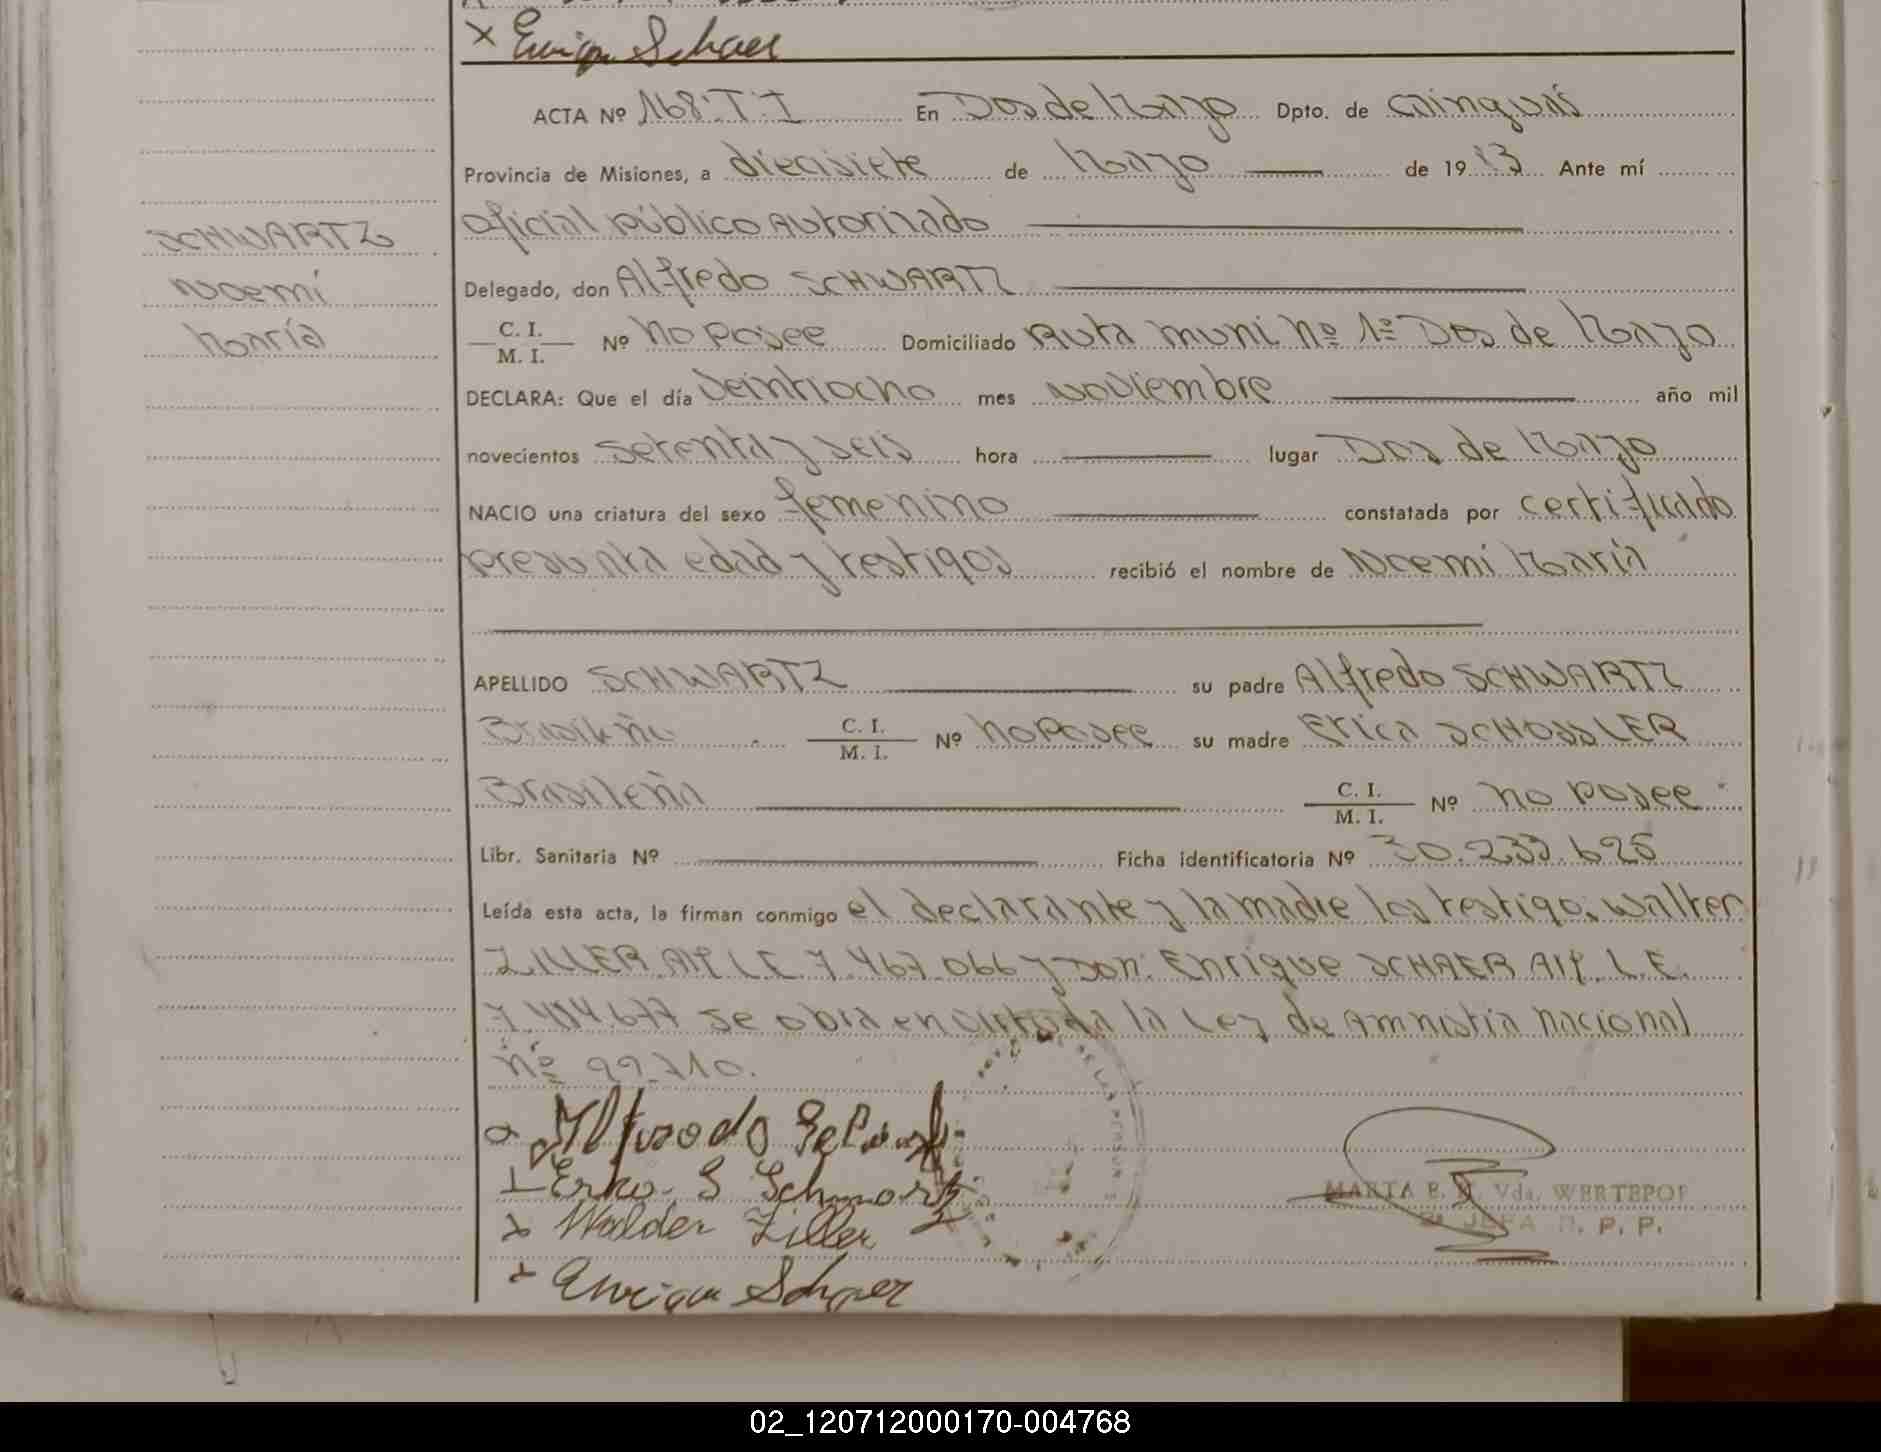 x Enrique Schaer
ACTA Nº 168.T.I En Dos de Mayo Dpto. de Cainguás
Provincia de Misiones, a diecisiete de Mayo de 19 83 Ante mí
Oficial público Autorizado
SCHWARTZ
Noemí
María
Delegado, don Alfredo SCHWARTZ
C. I.
M. I.
Nº no posee Domiciliado Ruta muni Nº 1º Dos de Mayo
DECLARA: Que el día veintiocho mes noviembre año mil
novecientos setenta y seis hora lugar Dos de Mayo
NACIO una criatura del sexo femenino constatada por certificado
presunta edad y testigos recibió el nombre de Noemí María
APELLIDO SCHWARTZ su padre Alfredo SCHWARTZ
Brasileño C. I.
M. I.
Nº no posee su madre Erica SCHOSSLER
Brasileña C. I.
M. I.
Nº no posee
Libr. Sanitaria Nº Ficha identificatoria Nº 30.233.625
Leída esta acta, la firman conmigo el declarante y la madre los testigos. Walter
ZILLER Arg L.E. 7.467.066 y Don: Enrique SCHAER Arg. L.E.
7.484.677 se obra en virtud a la Ley de Amnistia nacional
nº 22.710.
Alfredo Schwartz
Erica S Schwartz
x Walder Ziller
x Enrique Schaer
MARTA E. Vda. WERTEPOF
JEFA R. P. P.
02_120712000170-004768